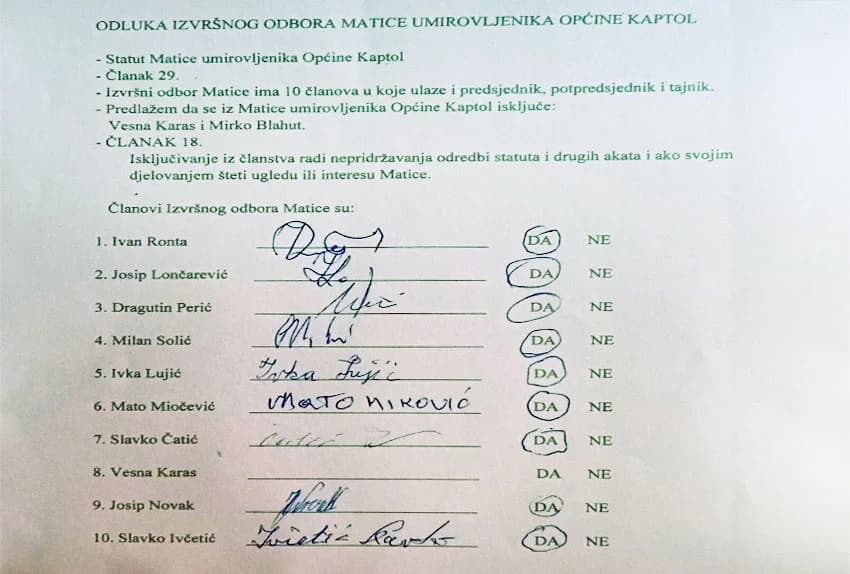 ODLUKA IZVRŠNOG ODBORA MATICE UMIROVLJENIKA OPĆINE KAPTOL
- Statut Matice umirovljenika Općine Kaptol
- Članak 29.
- Izvršni odbor Matice ima 10 članova u koje ulaze i predsjednik, potpredsjednik i tajnik.
- Predlažem da se iz Matice umirovljenika Općine Kaptol isključe:
Vesna Karas i Mirko Blahut.
- ČLANAK 18.
Isključivanje iz članstva radi nepridržavanja odredbi statuta i drugih akata i ako svojim
djelovanjem šteti ugledu ili interesu Matice.
Članovi Izvršnog odbora Matice su:
1. Ivan Ronta DA NE
2. Josip Lončarević DA NE
3. Dragutin Perić DA NE
4. Milan Solić DA NE
5. Ivka Lujić Ivka Lujić DA NE
6. Mato Miočević MATO MIKOVIĆ DA NE
7. Slavko Čatić DA NE
8. Vesna Karas DA NE
9. Josip Novak Novak DA NE
10. Slavko Ivčetić Ivčetić Slavko DA NE